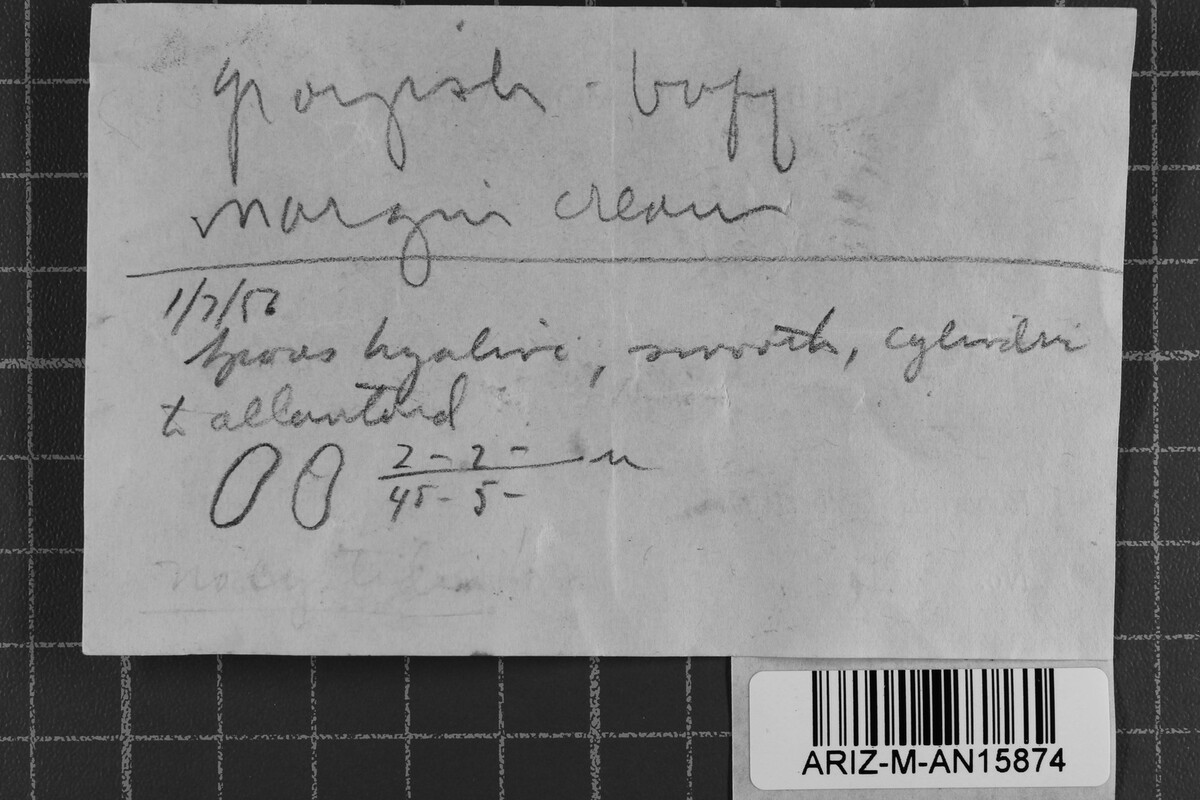 grayish - buff
margin cream
1/7/56
Spores hyaline, smooth, cylindric
to allantoid
2- 2- u
45- 5-
no cystidia
ARIZ-M-AN15874